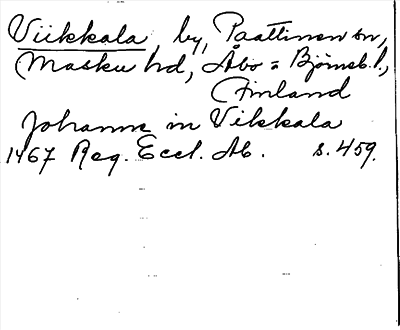 Viikkala, by, Paattinen sn,
Masku hd, Åbo = Björneb. l.,
Finland
Johanne in Vikkala
1467 Reg. Eccl. Ab. s. 459.